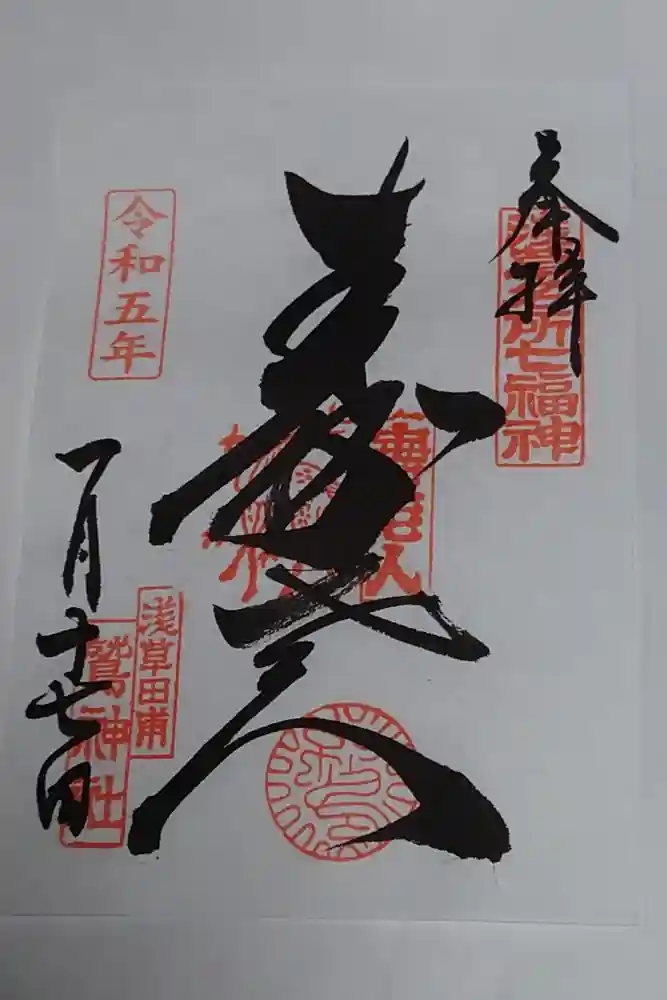 奉拝
浅草名所七福神
壽老人
壽老人
令和五年
一月十七日
浅草田甫
鷲神社